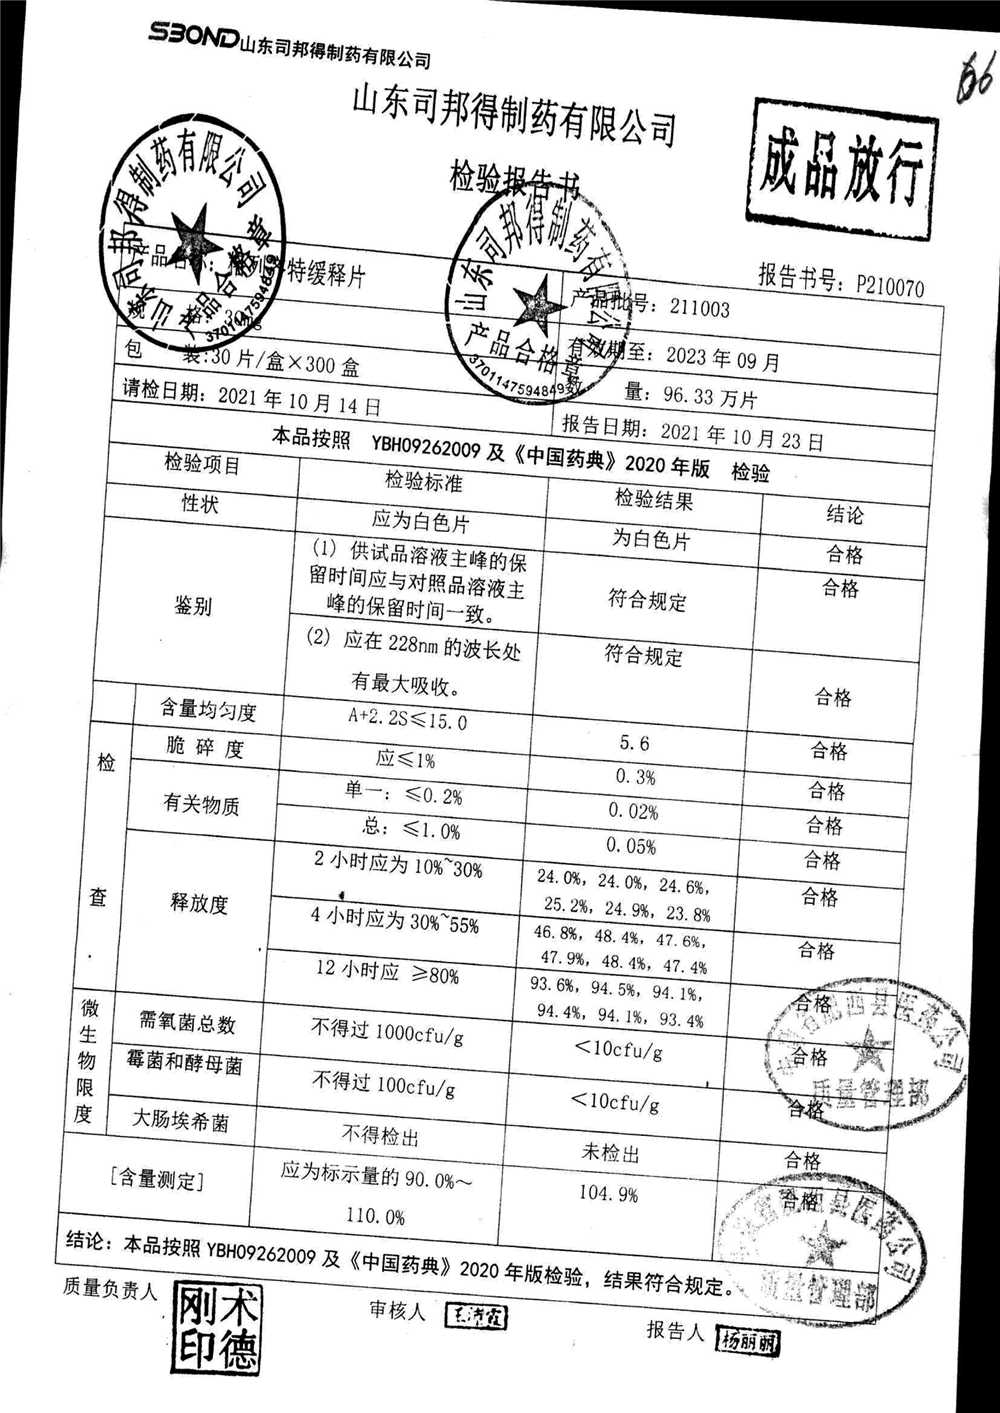 SBOND山东司邦得制药有限公司
山东司邦得制药有限公司
检验报告书
成品放行
报告书号：P210070
产品名称： 列 特缓释片
产品批号：211003
规 格：30mg
有效期至：2023年09月
包 装:30片/盒×300盒
数 量：96.33万片
请检日期：2021年10月14日
报告日期：2021年10月23日
本品按照 YBH09262009及《中国药典》2020年版 检验
检验项目 检验标准 检验结果 结论
性状 应为白色片 为白色片 合格
鉴别
(1) 供试品溶液主峰的保
留时间应与对照品溶液主
峰的保留时间一致。
符合规定 合格
(2) 应在228nm的波长处
有最大吸收。
符合规定 合格
检
查
含量均匀度 A+2.2S≤15.0 5.6 合格
脆 碎 度 应≤1% 0.3% 合格
有关物质 单一：≤0.2% 0.02% 合格
总：≤1.0% 0.05% 合格
释放度
2小时应为10%~30% 24.0%，24.0%，24.6%， 合格
25.2%，24.9%，23.8%
4小时应为30%~55% 46.8%，48.4%，47.6%， 合格
47.9%，48.4%，47.4%
12小时应 ≥80% 93.6%，94.5%，94.1%， 合格
94.4%，94.1%，93.4%
微生物限度
需氧菌总数 不得过1000cfu/g <10cfu/g 合格
霉菌和酵母菌 不得过100cfu/g <10cfu/g 合格
大肠埃希菌 不得检出 未检出 合格
[含量测定] 应为标示量的90.0%～ 104.9% 合格
110.0%
结论：本品按照YBH09262009及《中国药典》2020年版检验，结果符合规定。
质量负责人 刚术印德
审核人
报告人 杨丽丽
山东司邦得制药有限公司
产品合格章
3701147594849
山东司邦得制药有限公司
产品合格章
3701147594849
肥西县医药公司
质量管理部
肥西县医药公司
质量管理部